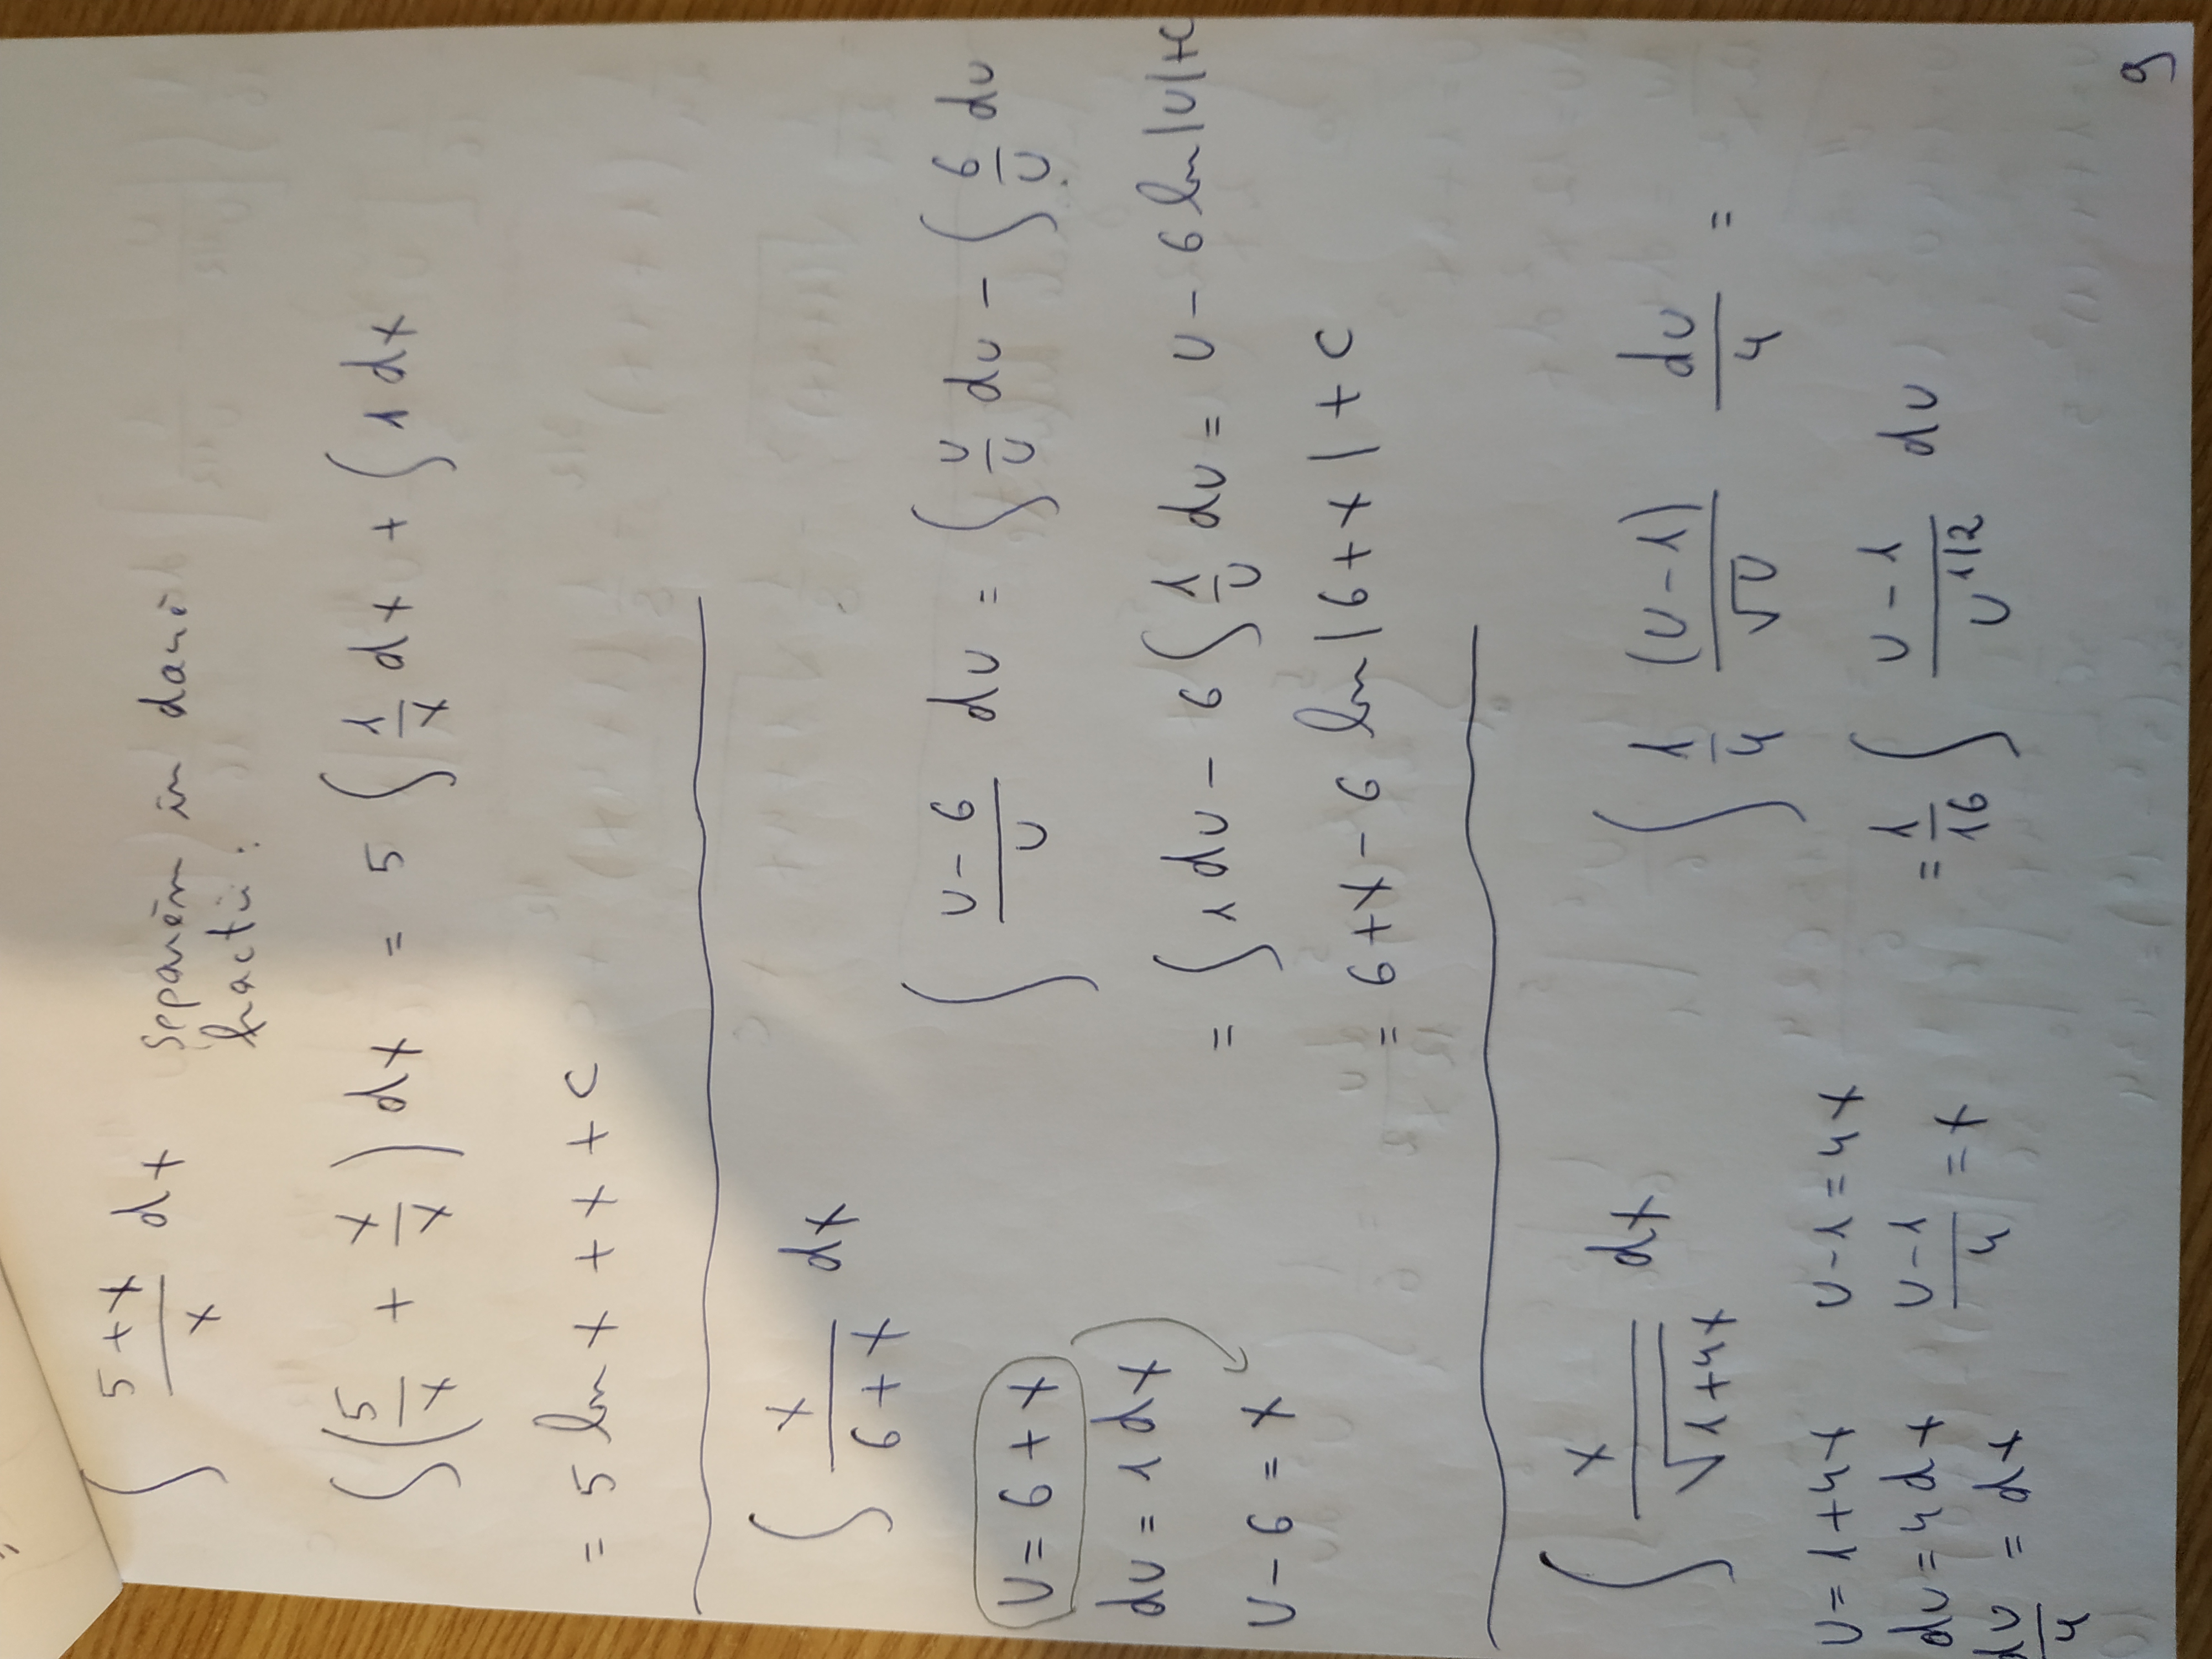 ∫ (5+x)/x dx separăm în două
fracții:
∫ (5/x + x/x) dx = 5 ∫ 1/x dx + ∫ 1 dx
= 5 ln x + x + C
∫ x/(6+x) dx
U = 6 + x
du = 1 dx
U - 6 = x
∫ (U-6)/U du = ∫ U/U du - ∫ 6/U du
= ∫ 1 du - 6 ∫ 1/U du = U - 6 ln|U| + C
= 6+x - 6 ln|6+x| + C
∫ x/√(1+4x) dx
U = 1+4x
du = 4 dx
du/4 = dx
U-1 = 4x
(U-1)/4 = x
∫ 1/4 (U-1)/√U du/4 =
= 1/16 ∫ (U-1)/U^(1/2) du
9